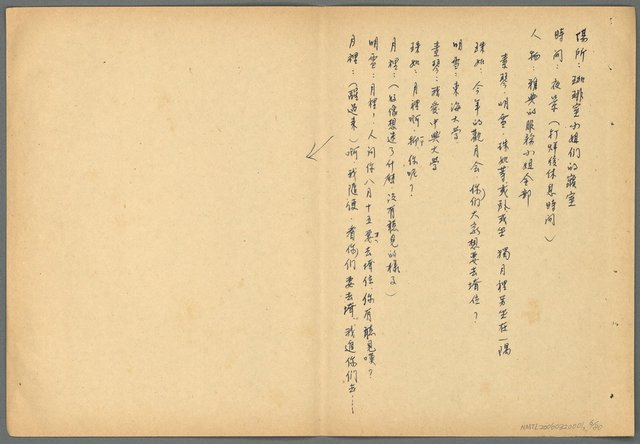 場所：珈琲室小姐們的寢室
時間：夜景（打烊後休息時間）
人物：雅典的服務小姐全部
素琴、明雪、珠如等或臥或坐 獨月裡另坐在一隅
珠如：今年的觀月会 你們大家想要去嗎位？
明雪：東海大学
素琴：我愛中興大学
珠如：月裡啊 你呢？
月裡：（好像想遠了什麼 沒有聽見的樣子）
明雪：月裡！人问你八月十五要去嗎位 你有聽見嘆？
月裡：（醒過来）啊 我隨便，看你们要去嗎，我追你們去……
NMTL20060320001, 5/50